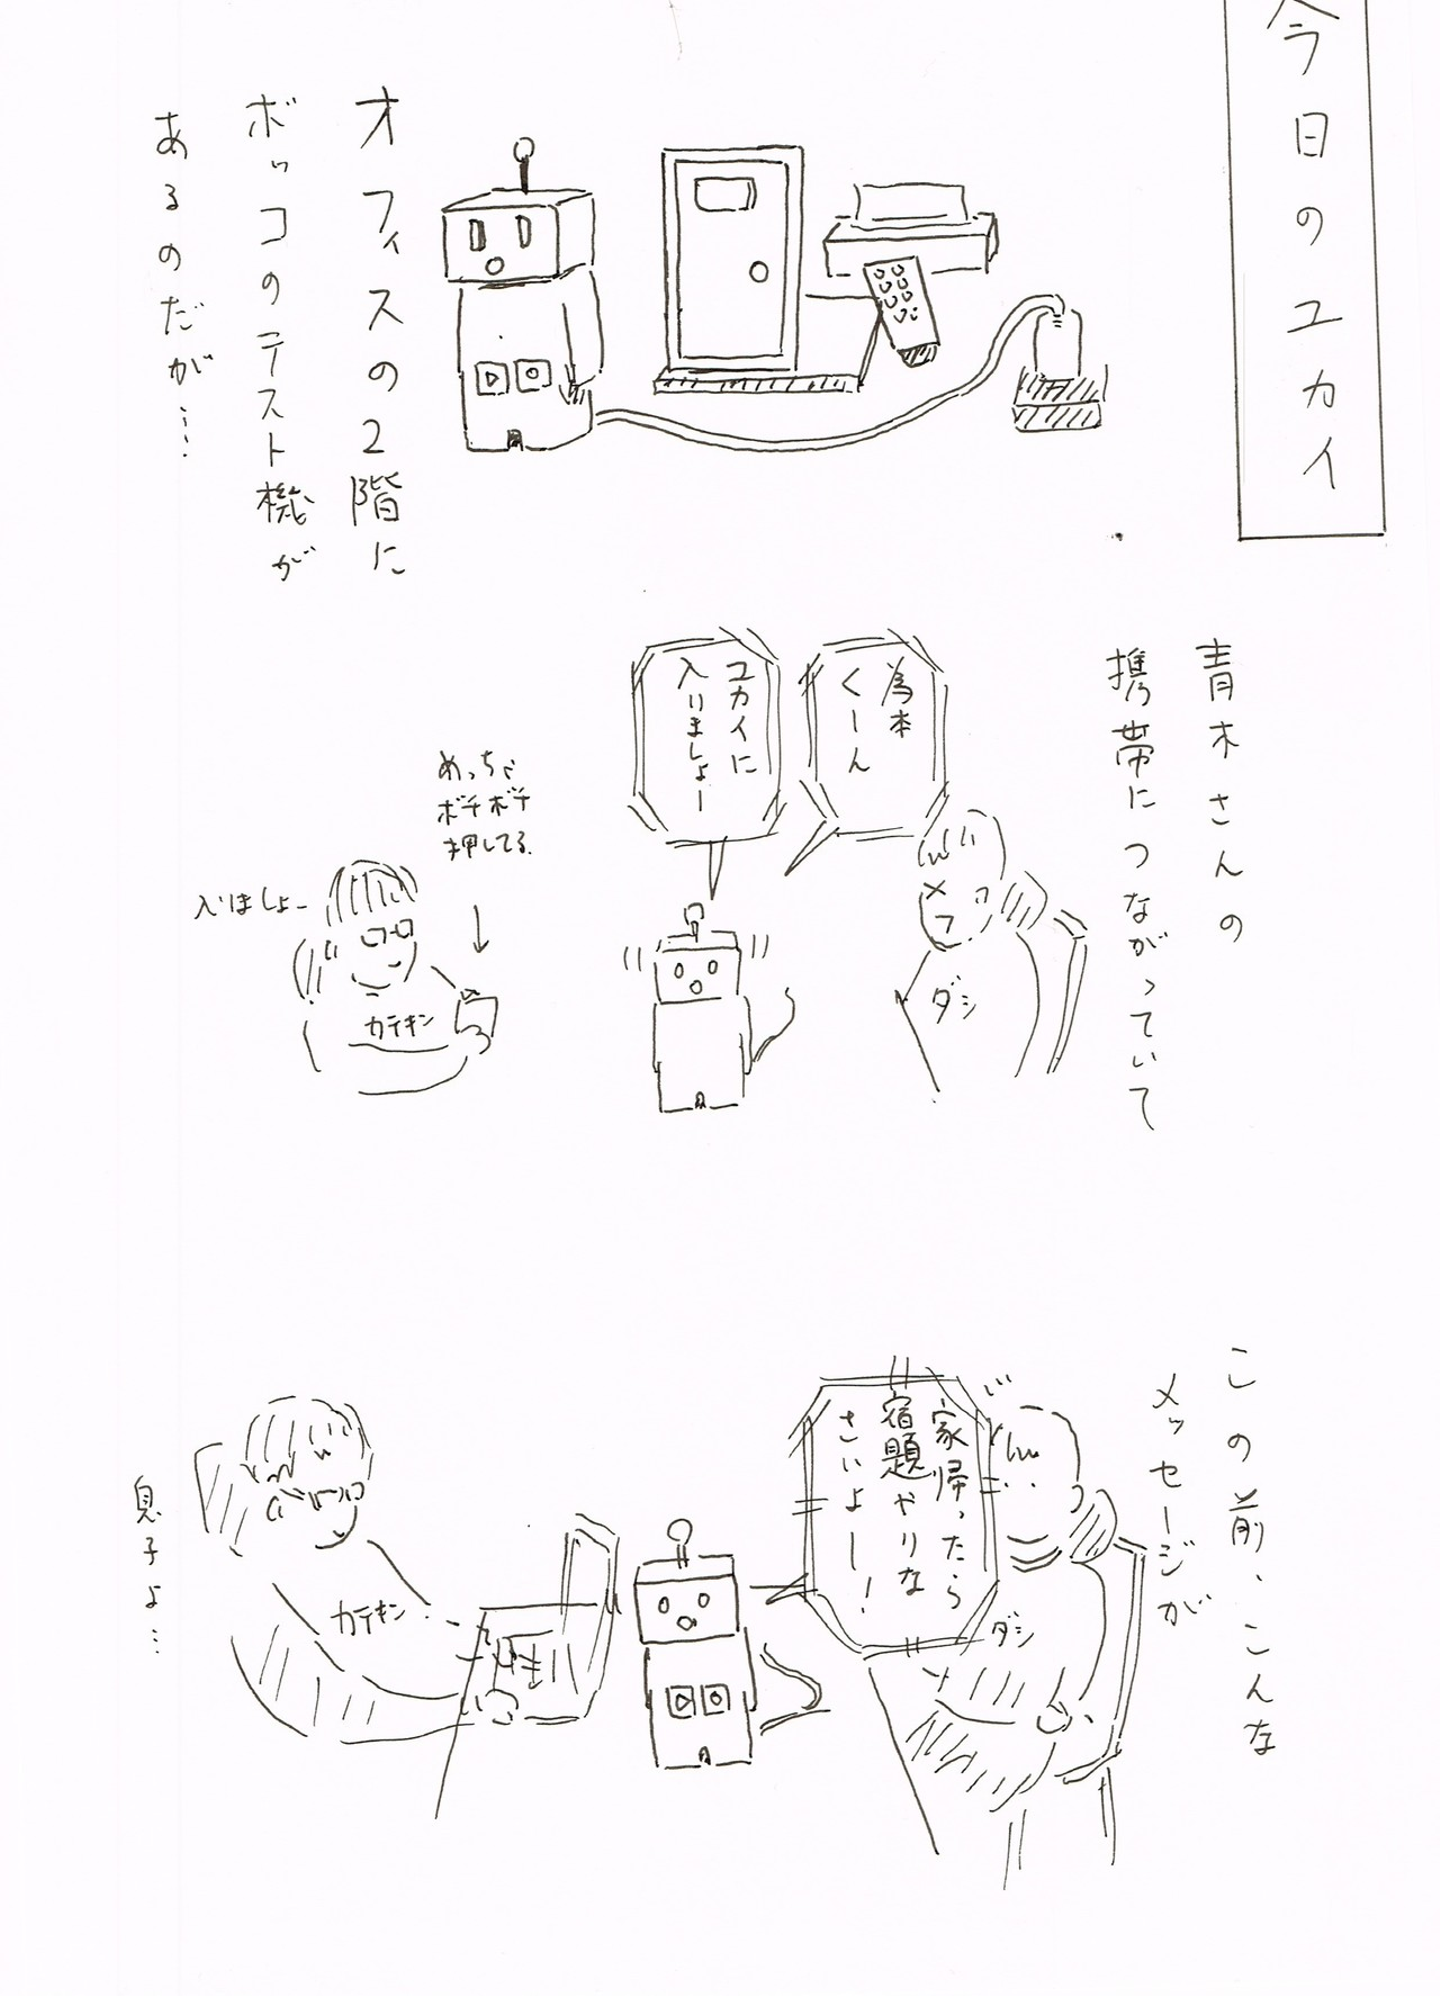 今日のユカイ
オフィスの2階に
ボッコのテスト機が
あるのだが…
青木さんの
携帯につながっていて
為本
くーん
ユカイに
入りましょー
めっちゃ
ポチポチ
押してる
入りましょー
ダシ
カテキン
この前、こんな
メッセージが
家帰ったら
宿題やりな
さいよー!
ダシ
カテキン
息子よ…